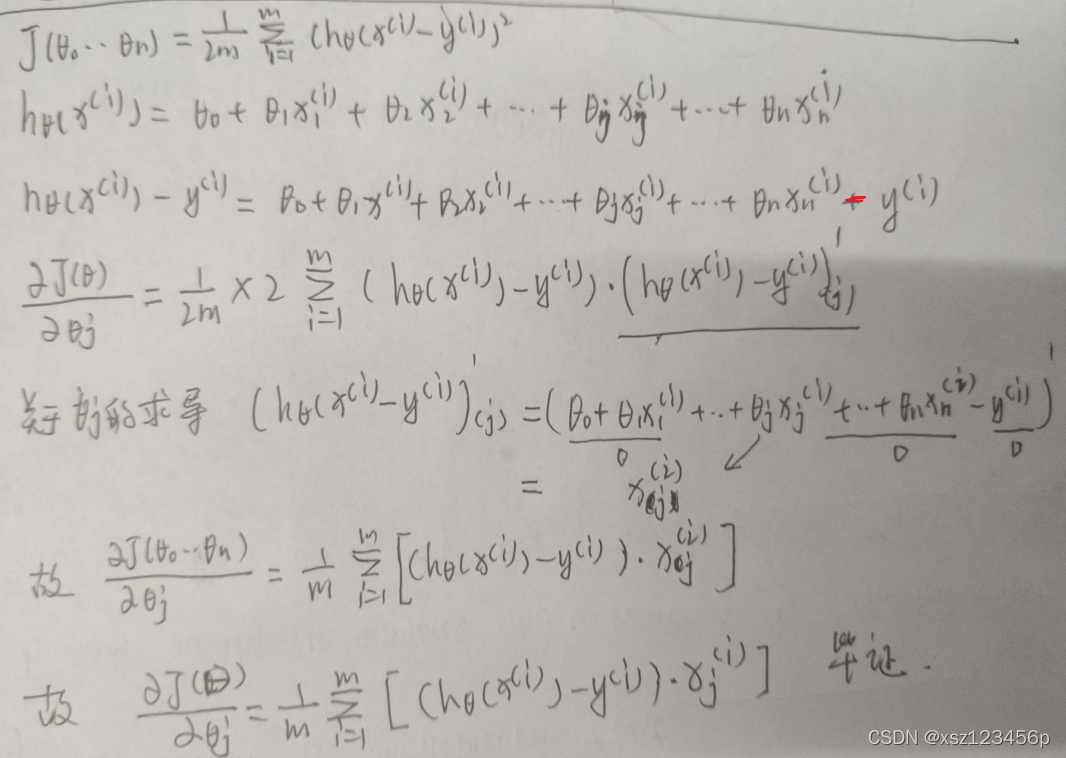 J(θ₀…θn) = 1/2m Σ_{i=1}^{m} (hθ(x⁽ⁱ⁾-y⁽ⁱ⁾)²
hθ(x⁽ⁱ⁾) = θ₀ + θ₁x₁⁽ⁱ⁾ + θ₂x₂⁽ⁱ⁾ + … + θj xj⁽ⁱ⁾ + … + θn xn⁽ⁱ⁾
hθ(x⁽ⁱ⁾) - y⁽ⁱ⁾ = θ₀ + θ₁x⁽ⁱ⁾ + θ₂x₂⁽ⁱ⁾ + … + θj xj⁽ⁱ⁾ + … + θn xn⁽ⁱ⁾ - y⁽ⁱ⁾
∂J(θ)/∂θj = 1/2m × 2 Σ_{i=1}^{m} (hθ(x⁽ⁱ⁾) - y⁽ⁱ⁾)·(hθ(x⁽ⁱ⁾) - y⁽ⁱ⁾)'(j)
关于θj的求导 (hθ(x⁽ⁱ⁾-y⁽ⁱ⁾)'(j) = (θ₀ + θ₁x₁⁽ⁱ⁾ + … + θj xj⁽ⁱ⁾ + … + θn xn⁽ⁱ⁾ - y⁽ⁱ⁾)'
0 0 0
= xj⁽ⁱ⁾
故 ∂J(θ₀…θn)/∂θj = 1/m Σ_{i=1}^{m} [(hθ(x⁽ⁱ⁾) - y⁽ⁱ⁾)·xj⁽ⁱ⁾]
故 ∂J(θ)/∂θj = 1/m Σ_{i=1}^{m} [(hθ(x⁽ⁱ⁾) - y⁽ⁱ⁾)·xj⁽ⁱ⁾] 毕证.
CSDN @xsz123456p